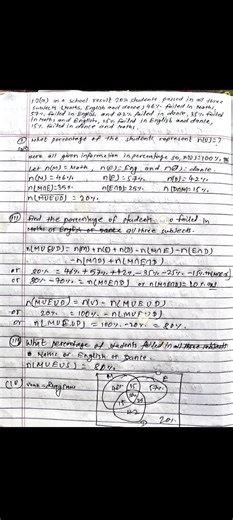 12(a) In a school result 20% students passed in all three
subjects (Maths, English and dance), 46% failed in Maths,
57% failed in English and 42% failed in dance, 35% failed
in Maths and English, 25% failed in English and dance,
15% failed in dance and Maths.
What percentage of the students represent n(U)=?
Here all given information in percentage so, n(U)=100%
Let n(M)= Math, n(E)= Eng and n(D)= dance.
n(M)=46% n(E)=57% n(D)=42%
n(M∩E)=35% n(E∩D)=25% n(D∩M)=15%
n(MUEUD)=20%
Find the percentage of students failed in
Maths or English or all three subjects.
n(MUEUD) = n(M)+n(E)+n(D)-n(M∩E)-n(E∩D)
-n(M∩D)+n(M∩E∩D)
or 80% = 46%+57%+42%-35%-25%-15%
or 80%-70% = n(M∩E∩D) or n(M∩E∩D)
n(MUEUD) = n(U)-n(MUEUD)
or 20% = 100%-n(MUEUD)
or n(MUEUD) = 100%-20% = 80%
What percentage of students failed in
Maths or English or Dance.
n(MUEUS) = 80%
Venn-Diagram
M E
57%
20%